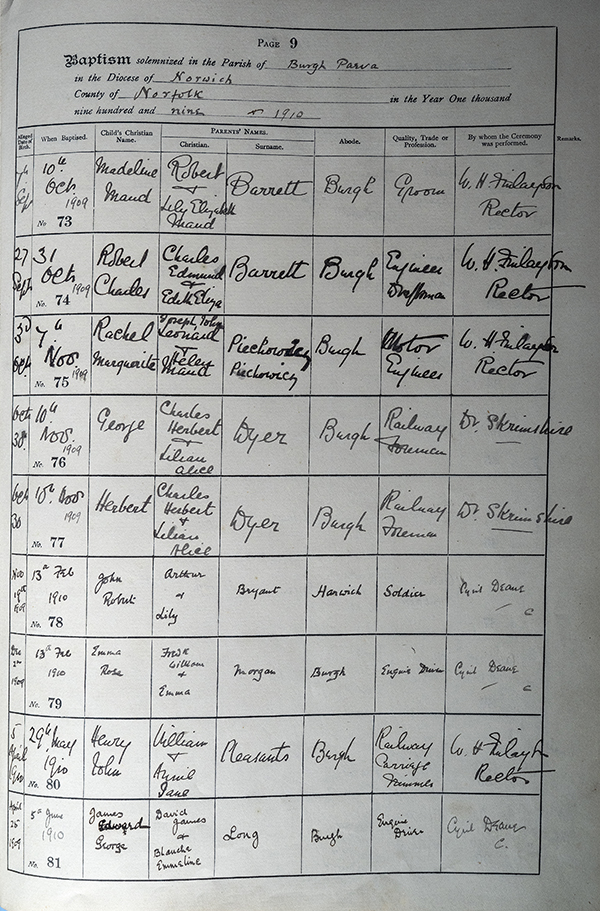 PAGE 9
Baptism solemnized in the Parish of Burgh Parva
in the Diocese of Norwich
County of Norfolk in the Year One thousand
nine hundred and nine & 1910
Alleged Date of Birth. When Baptised. Child's Christian Name. PARENTS' NAMES. Christian. Surname. Abode. Quality, Trade or Profession. By whom the Ceremony was performed. Remarks.
7th Sept
10th Oct 1909
No 73
Madeline Maud
Robert & Lily Elizabeth Maud
Barrett
Burgh
Groom
W. H. Finlayson Rector
27 Sept
31 Oct 1909
No. 74
Robert Charles
Charles Edmund & Edith Eliza
Barrett
Burgh
Engineer Draftsman
W. H. Finlayson Rector
3rd Oct
7th Nov 1909
No. 75
Rachel Marguerite
Joseph John Leonard Helen Maud
Piechowicz
Burgh
Motor Engineer
W. H. Finlayson Rector
Oct 30th
10th Nov. 1909
No. 76
George
Charles Herbert & Lilian Alice
Dyer
Burgh
Railway Foreman
Dr. Skrimshire
Oct 30
10th Nov 1909
No. 77
Herbert
Charles Herbert & Lilian Alice
Dyer
Burgh
Railway Foreman
Dr Skrimshire
Nov 19th 1909
13th Feb 1910
No. 78
John Robert
Arthur & Lily
Bryant
Harwich
Soldier
Cyril Deane C
Dec 2nd 1909
13th Feb 1910
No. 79
Emma Rose
Fredk William & Emma
Morgan
Burgh
Engine Driver
Cyril Deane C
5 April 1910
29th May 1910
No. 80
Henry John
William & Annie Jane
Pleasants
Burgh
Railway Carriage Trimmer
W. H Finlayson Rector
April 25 1909
5th June 1910
No. 81
James Edward George
David James & Blanche Emmeline
Long
Burgh
Engine Driver
Cyril Deane C.